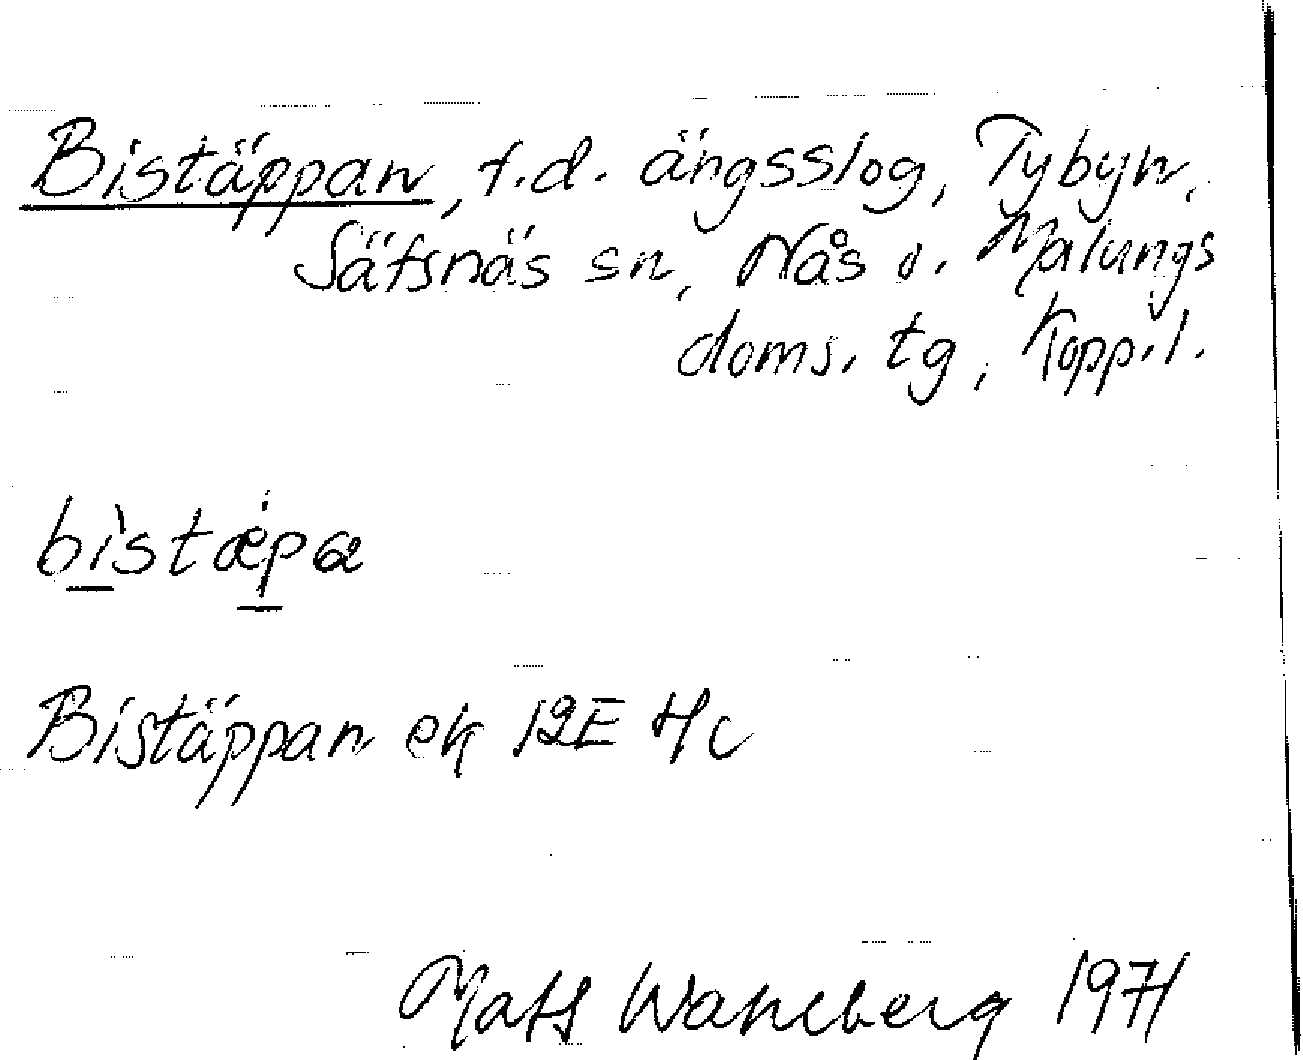 Bistäppan, f.d. ängsslog, Tybyn,
Säfsnäs sn, Nås o. Malungs
doms. tg, Kopp.l.
bìstæpa
Bistäppan ek 12E 4c
Mats Wahlberg 1971